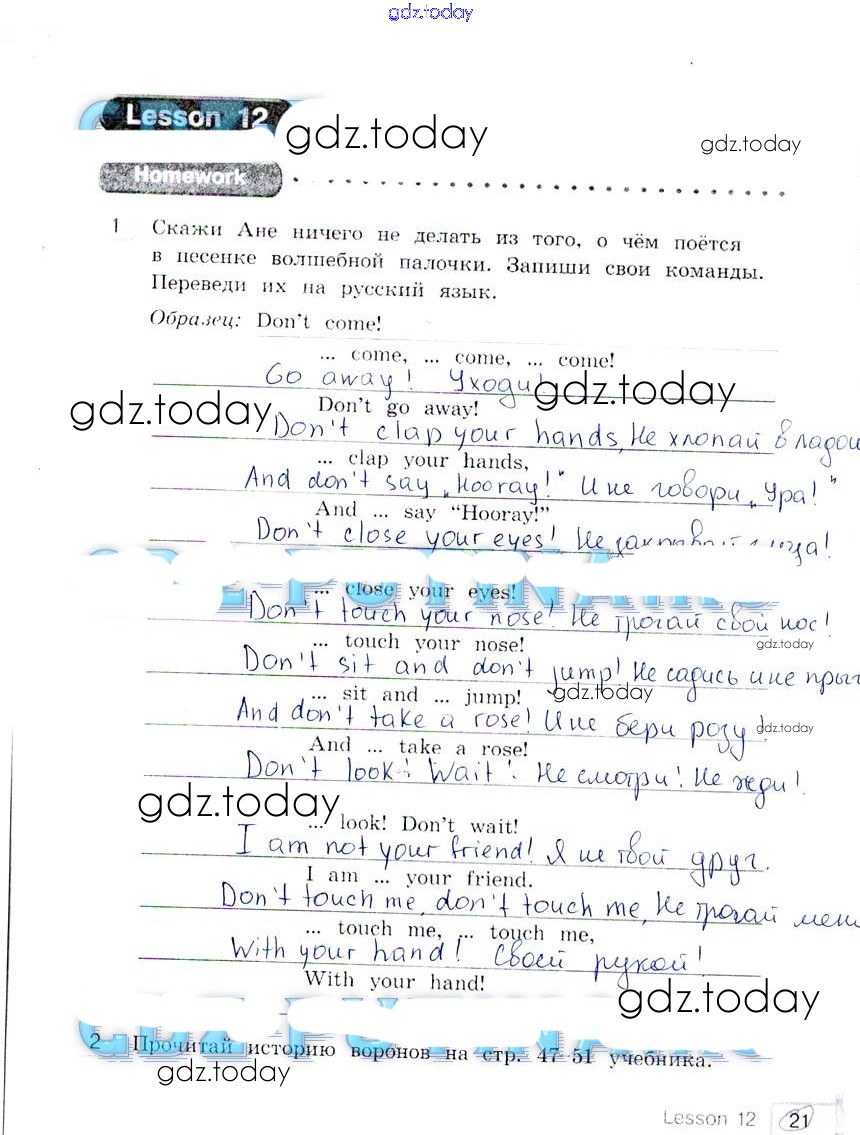 gdz.today
Lesson 12
gdz.today
gdz.today
Homework
1 Скажи Ане ничего не делать из того, о чём поётся
в песенке волшебной палочки. Запиши свои команды.
Переведи их на русский язык.
Образец: Don't come!
... come, ... come, ... come!
Go away! Уходи!
gdz.today
gdz.today
Don't go away!
Don't clap your hands, Не хлопай в ладо
... clap your hands,
And don't say „Hooray!" И не говори „Ура!"
And ... say “Hooray!”
Don't close your eyes! Не
... close your eyes!
Don't touch your nose! Не трогай свой нос!
gdz.today
... touch your nose!
Don't sit and don't jump! Не садись и не прыг
gdz.today
... sit and ... jump!
And don't take a rose! И не бери розу
gdz.today
And ... take a rose!
Don't look! Wait! Не смотри! Не жди!
gdz.today
... look! Don't wait!
I am not your friend! Я не твой друг.
I am ... your friend.
Don't touch me, don't touch me, Не трогай мен
... touch me, ... touch me,
With your hand! Своей рукой!
With your hand!
gdz.today
2 Прочитай историю воронов на стр. 47–51 учебника.
gdz.today
Lesson 12 21